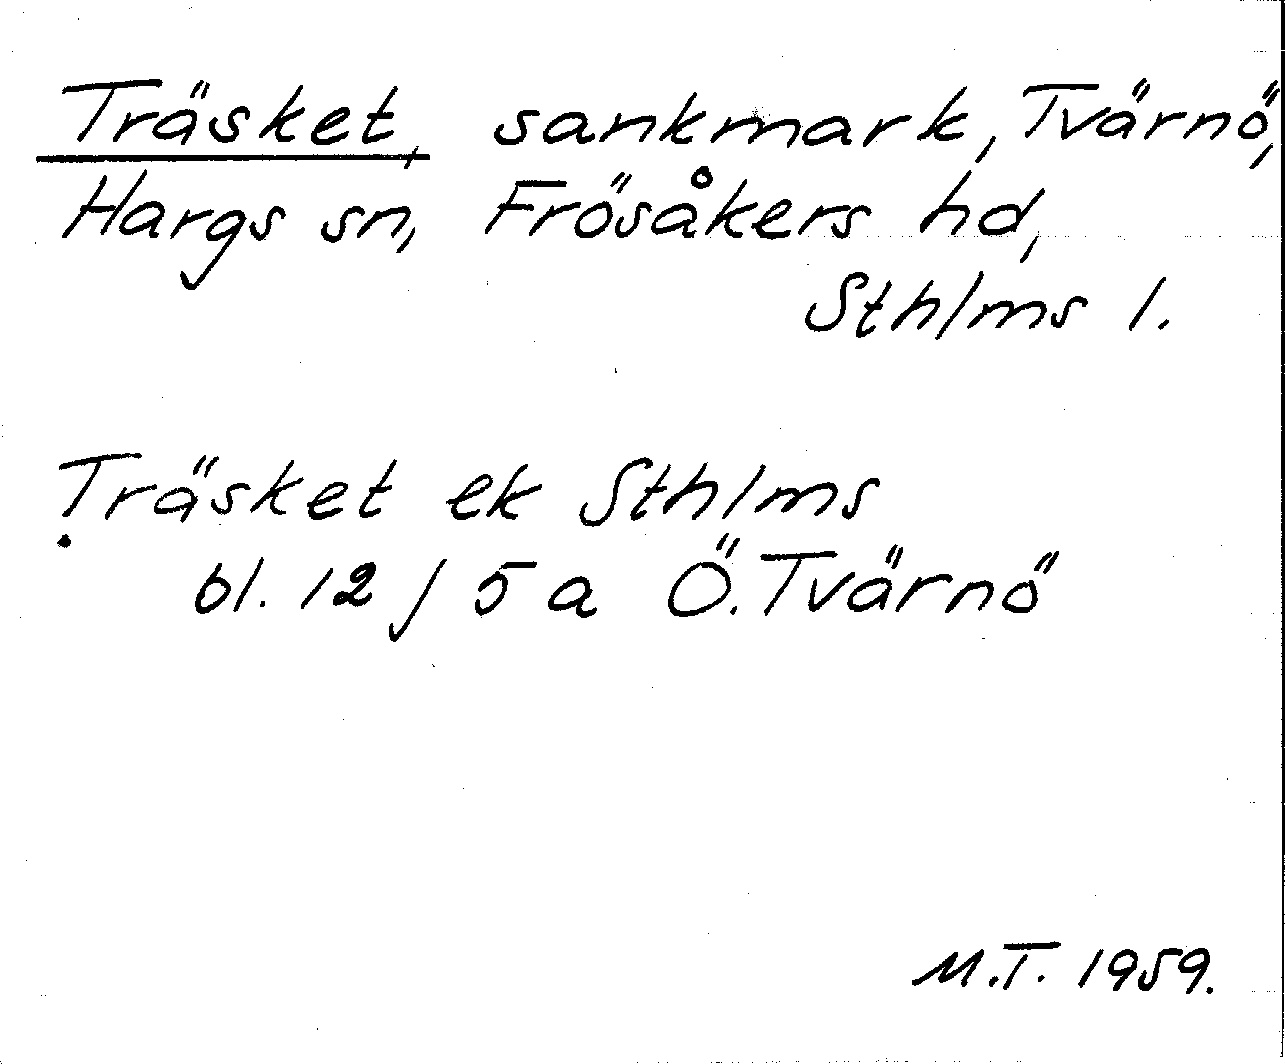 Träsket, sankmark, Tvärnö,
Hargs sn, Frösåkers hd,
Sthlms l.
Träsket ek Sthlms
bl. 12 / 5 a Ö. Tvärnö
M.T. 1959.